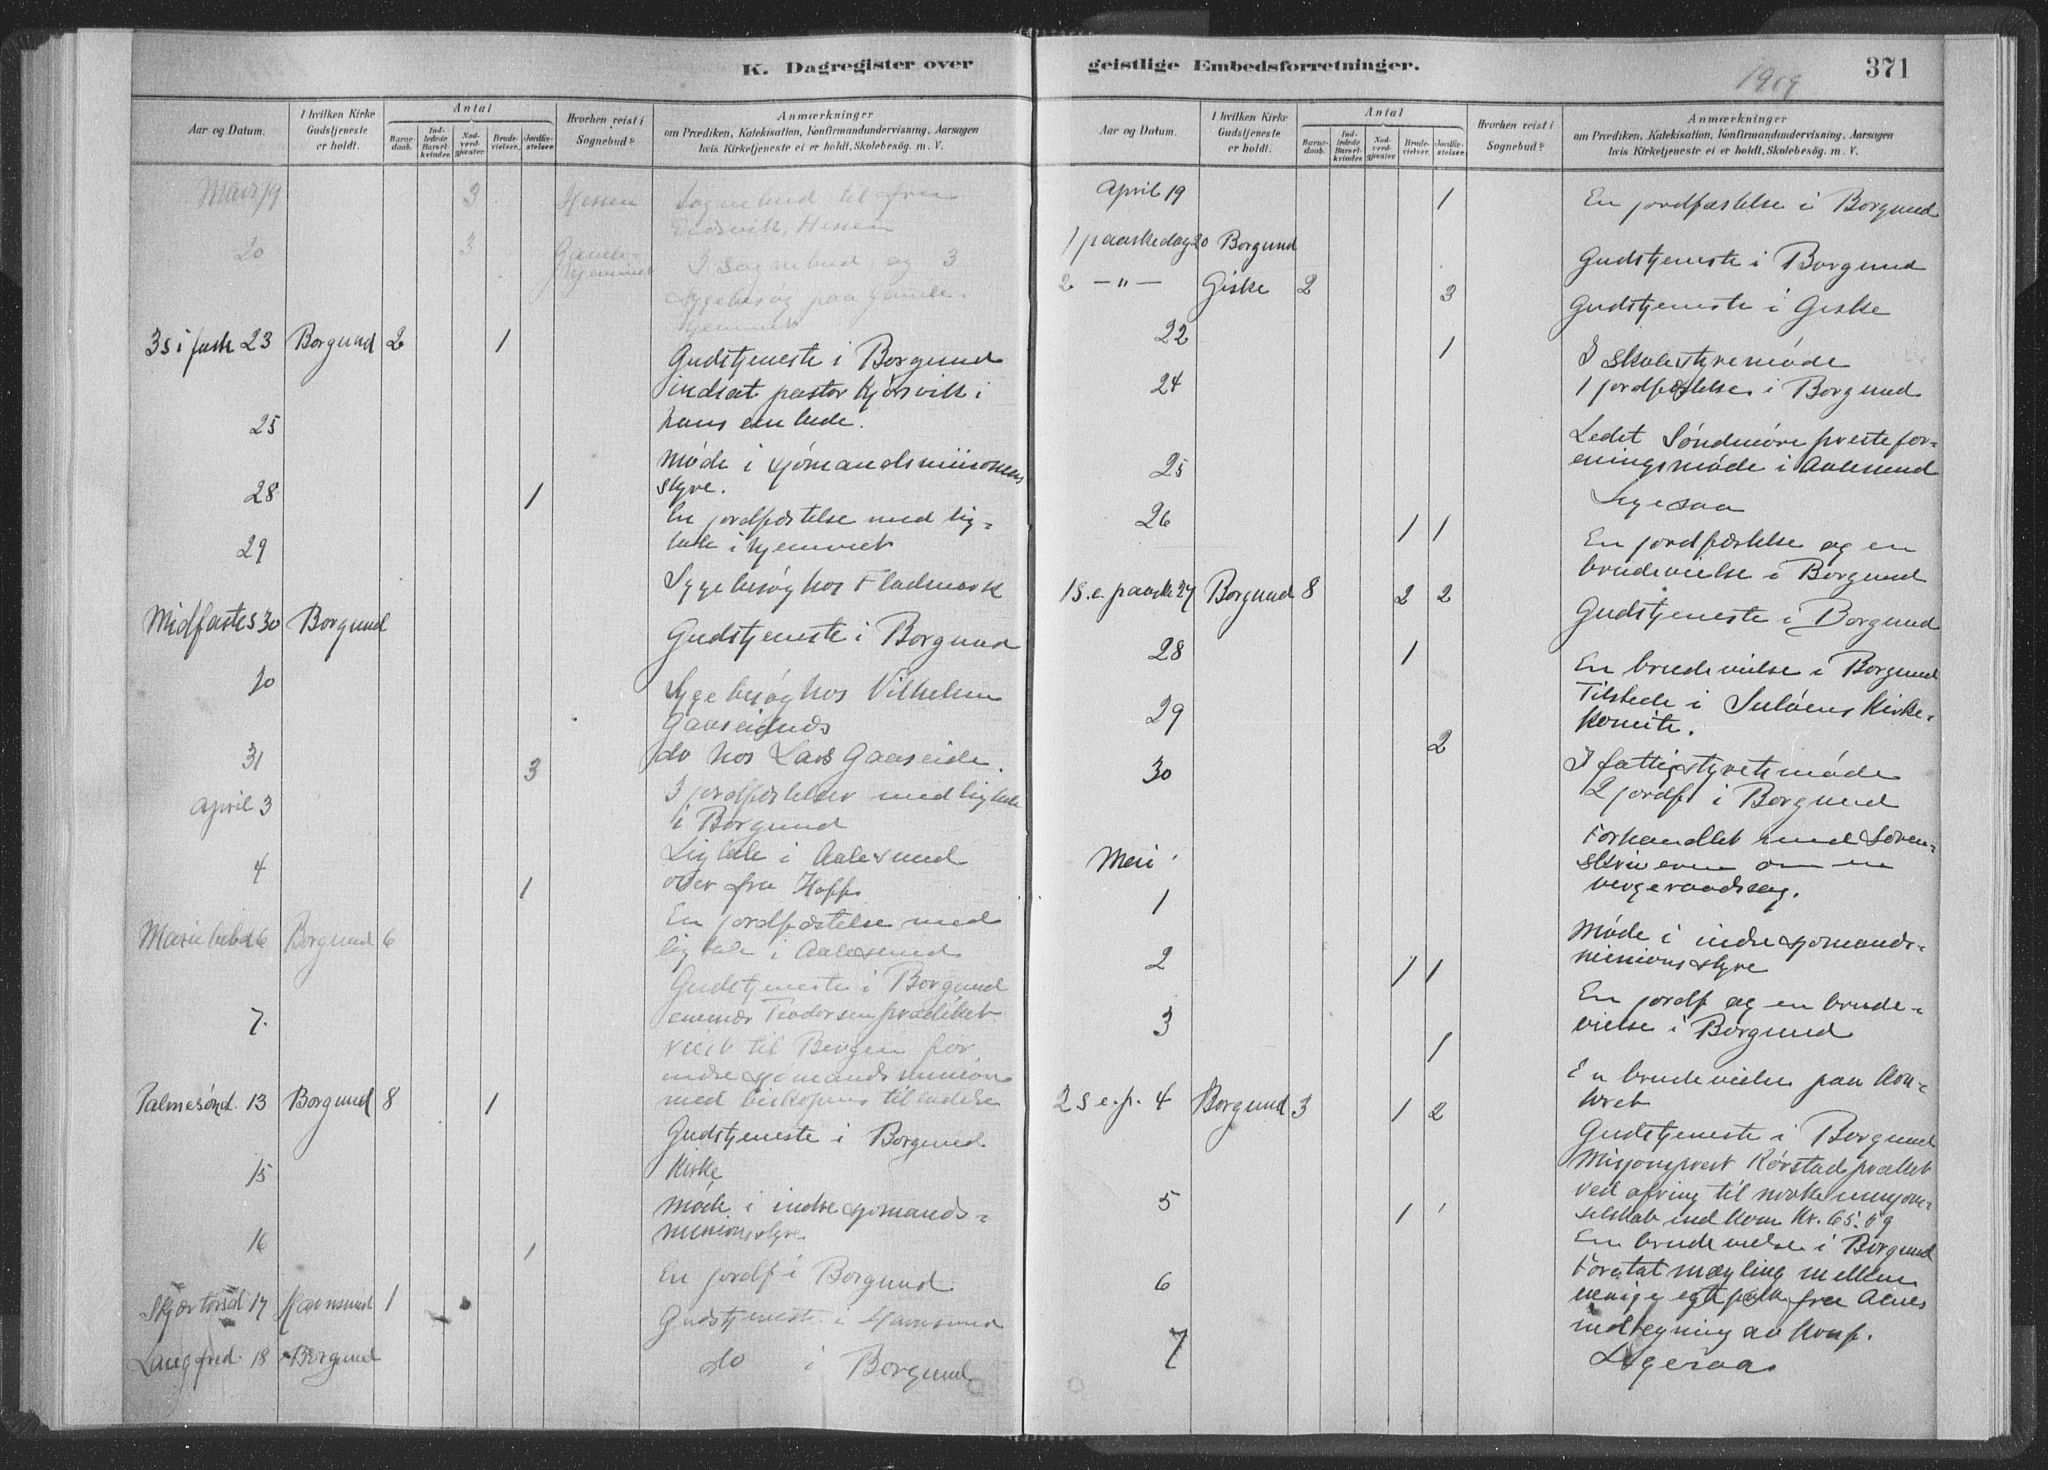 K. Dagregister over
Aar og Datum.
I hvilken Kirke Gudstjeneste er holdt.
Antal
Barnedaab.
Indledede Barselkvinder.
Nadverdgjæster.
Brudevielser.
Jordfæstelser.
Hvorhen reist i Sognebud?
Anmærkninger
om Prædiken, Katekisation, Konfirmandundervisning, Aarsagen
hvis Kirketjeneste ei er holdt, Skolebesøg. m. V.
Mars 19 3 Hessen Sognebud til fru
Eidsvik, Hessen
20 3 Gamlehjemmet 3 sognebud og 3
sygebesøg paa gamlehjemmet
3 s i fasten 23 Borgund 2 1 Gudstjeneste i Borgund
indsat pastor Kjørsvik i
hans embede.
25 Møde i sjømandsmissionens
styre.
28 1 En jordfæstelse med lig=
tale i hjemmet
29 Sygebesøg hos Flademark
Midfastes 30 Borgund Gudstjeneste i Borgund
30 Sygebesøg hos Vilhelm
Gaaseidnes
31 3 do hos Lars Gaaseide.
April 3 3 jordfæstelser med ligtale
i Borgund
Ligtale i Aalesund
4 1 over fru Hoff
En jordfæstelse med
Marie bebd 6 Borgund 6 ligtale i Aalesund
Gudstjeneste i Borgund
7. reist til Bergen for
indre sjømandsmission
Palmesønd. 13 Borgund 8 1 med biskopens tilladelse
Gudstjeneste i Borgund
Kirke
15 Møde i indre sjomands=
missions styre.
16 1 En jordf i Borgund
Skjærtorsd 17 Hamnsund 1 Gudstjeneste i Hamnsund
Langfred. 18 Borgund do i Borgund
geistlige Embedsforretninger.
1919
371
Aar og Datum.
I hvilken Kirke Gudstjeneste er holdt.
Antal
Barnedaab.
Indledede Barselkvinder.
Nadverdgjæster.
Brudevielser.
Jordfæstelser.
Hvorhen reist i Sognebud?
Anmærkninger
om Prædiken, Katekisation, Konfirmandundervisning, Aarsagen
hvis Kirketjeneste ei er holdt, Skolebesøg. m. V.
April 19 1 En jordfæstelse i Borgund
1 paaskedag 20 Borgund Gudstjeneste i Borgund
2 — " — Giske 2 3 Gudstjeneste i Giske
22 1 I skolestyremøde
24 1 jordfæstelse i Borgund
Ledet Søndmøre prestefor=
25 eningsmøde i Aalesund
Lygesaa
26 1 1 En jordfæstelse og en
brudevielse i Borgund
1 s. e. paaske 27 Borgund 8 2 2 Gudstjeneste i Borgund
28 1 En brudevielse i Borgund
29 Tilstede i Suløens Kirke=
komite.
2 I fattigstyrets møde
30 2 jordf i Borgund
Forhandlet med Soren=
skriveren om en
vergeraadssag.
Mai
1 Møde i indre sjomands=
missions styre
2 1 1 En jordf og en brude=
vielse i Borgund
3 1 En brudevielse paa kon=
toret
2 s. e. p. 4 Borgund 3 1 2 Gudstjeneste i Borgund
Misjonsprest Rørstad prædket
ved ofring til norske misjons=
selskab ind kom Kr. 65.59
5 1 ' En brudevielse i Borgund
6 Foretat mægling mellem
uenige egtefolk fra Alnes
7 indtegning av konf.
Lygesaa